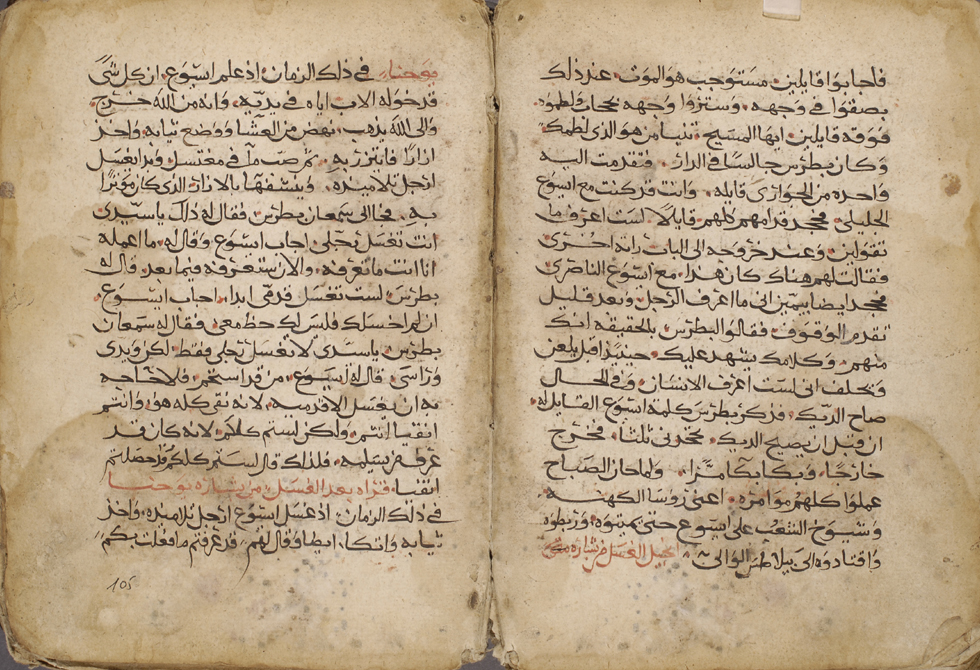 فاجابوا قايلين مستوجب هو الموت عند ذلك
بصقوا في وجهه وستروا وجهه يخجاف لطموه
فوقه قايلين ايها المسيح تنبا من هو الذي لطمك
وكان بطرس جالسا في الدار فتقدمت اليه
واحده من الجواري قايله وانت قد كنت مع ايسوع
الجليلي فجحد قدامهم كلهم قايلا لست اعرف ما
تقولين وعند خروجه الى الباب راته اخرى
فقالت لهم هناك كان هذا مع ايسوع الناصري
فجحد ايضا بيمين اني ما اعرف الرجل وبعد قليل
تقدم الوقوف فقالوا لبطرس بالحقيقه انك
منهم وكلامك يشهد عليك حينيذ اقبل يلعن
ويحلف اني لست اعرف الانسان وفي الحال
صاح الديك فذكر بطرس كلمة ايسوع القايل له
ان قبل ان يصيح الديك تجحدني ثلثا فخرج
خارجا وبكا بكا مرا ولما حان الصباح
عملوا كلهم موامره اعني روسا الكهنه
وشيوخ الشعب على ايسوع حتى يميتوه وربطوه
واقتادوه الى بيلاطس الوالي انجيل الغسل من بشاره
يوحنا في ذلك الزمان اذ علم ايسوع ان كل شي
قد خوله الاب اياه في يديه وانه من الله خرج
والى الله يذهب نهض من العشا ووضع ثيابه واخذ
ازارا فاتزر به ثم صب ما في مغتسل وبدا يغسل
ارجل تلاميذه وينشفها بالازار الذي كان موتزرا
به فجا الى سمعان بطرس فقال له ذاك يا سيدي
انت تغسل رجلي اجاب ايسوع وقال له ما اعمله
انا انت ما تعرفه والان ستعرفه فيما بعد قال له
بطرس لست تغسل قدمي ابدا اجاب ايسوع
ان لم اغسلك فليس لك حظ معي فقال له سمعان
بطرس يا سيدي لا تغسل رجلي فقط لكن ويدي
وراسي قال له ايسوع من قد استحم فلا حاجه
به ان يغسل الا قدميه لانه نقي كله هو وانتم
انقيا انتم ولكن لستم كلكم لانه كان قد
عرف من يسلمه فلذلك قال لستم كلكم قد حصلتم
انقيا قراه بعد الغسل من بشاره يوحنا
في ذلك الزمان اذ غسل ايسوع ارجل تلاميذه واخذ
ثيابه واتكا ايضا وقال لهم قد عرفتم ما فعلت بكم
105